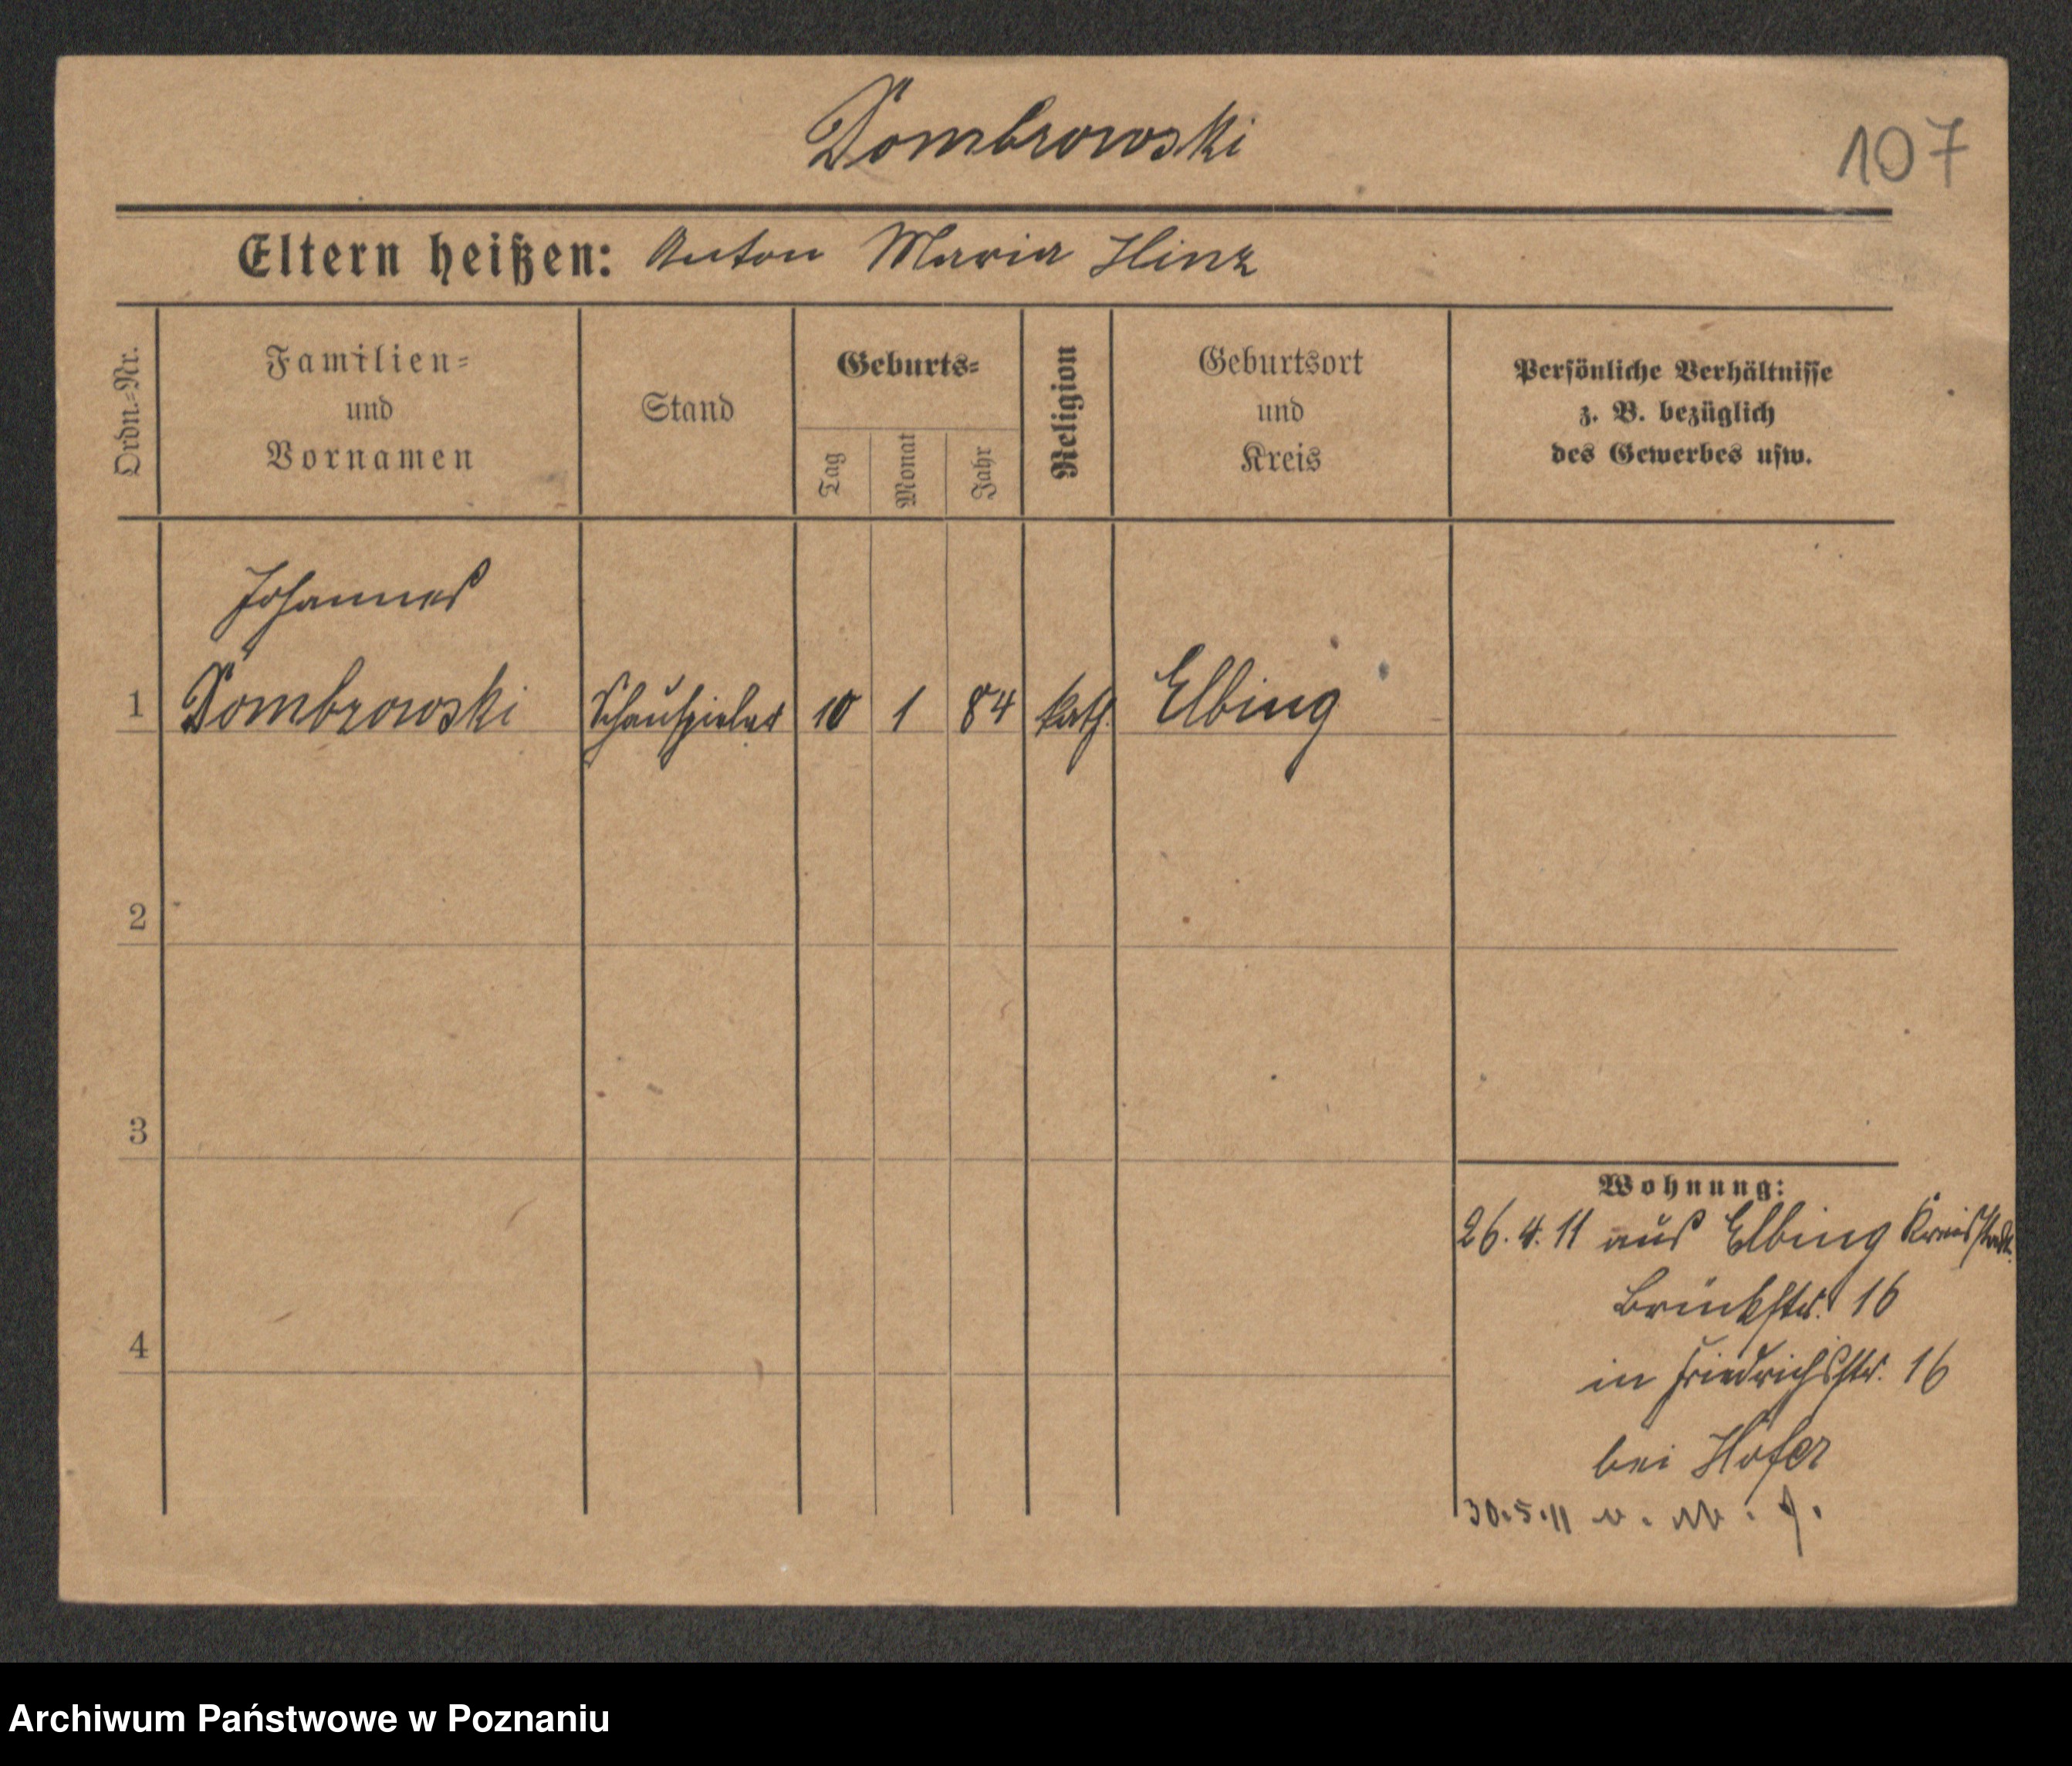 Dombrowski
107
Eltern heißen: Anton Maria Hinz
Ordn.-Nr.
Familien-
und
Vornamen
Stand
Geburts-
Tag
Monat
Jahr
Religion
Geburtsort
und
Kreis
Persönliche Verhältnisse
z. B. bezüglich
des Gewerbes usw.
Johannes
1 Dombrowski Schauspieler 10 1 84 kath. Elbing
2
3
4
Wohnung:
26.4.11 aus Elbing Kreis
Brückstr. 16
in Friedrichstr. 16
bei Hofer
30.5.11
Archiwum Państwowe w Poznaniu